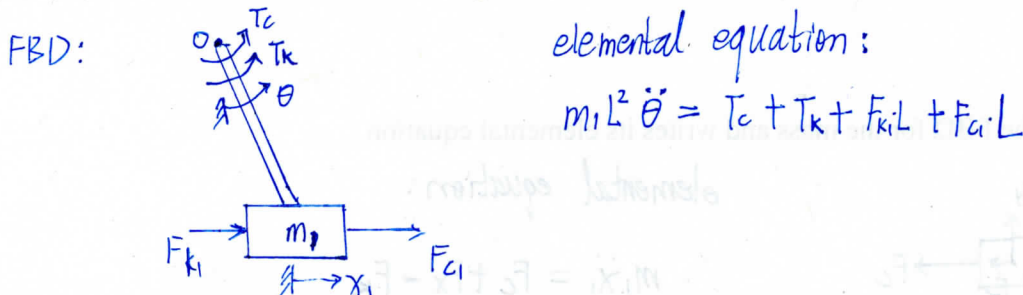 FBD:
O
Tc
Tk
θ
m₁
Fk₁
Fc₁
x₁
elemental equation:
m₁L² θ̈ = Tc + Tk + Fk₁·L + Fc₁·L